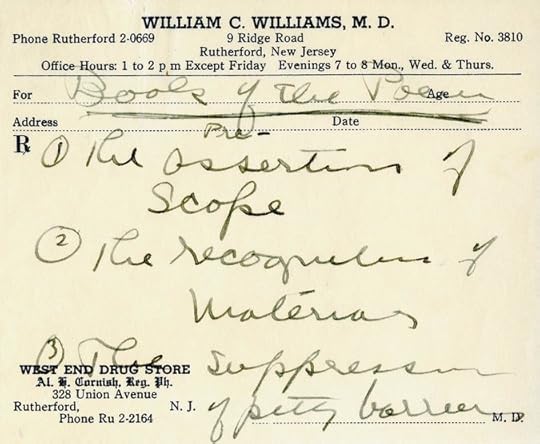 WILLIAM C. WILLIAMS, M. D.
Phone Rutherford 2-0669 9 Ridge Road Reg. No. 3810
Rutherford, New Jersey
Office Hours: 1 to 2 p m Except Friday Evenings 7 to 8 Mon., Wed. & Thurs.
For Books of the Poem Age
Address Date
Pre-
R 1 The assertion of
Scope
2 The recognition of
Materials
3 The suppression
WEST END DRUG STORE
Al. H. Cornish, Reg. Ph.
328 Union Avenue
Rutherford, N. J. of petty barrier M. D.
Phone Ru 2-2164